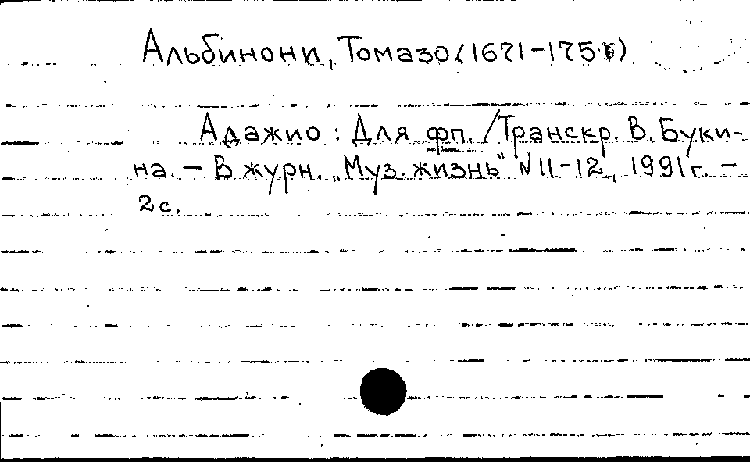 Альбинони, Томазо (1671-1751)
Адажио : Для фп. / Транскр. В. Буки-
на. - В журн. „Муз. жизнь" N 11-12, 1991 г. -
2 с.